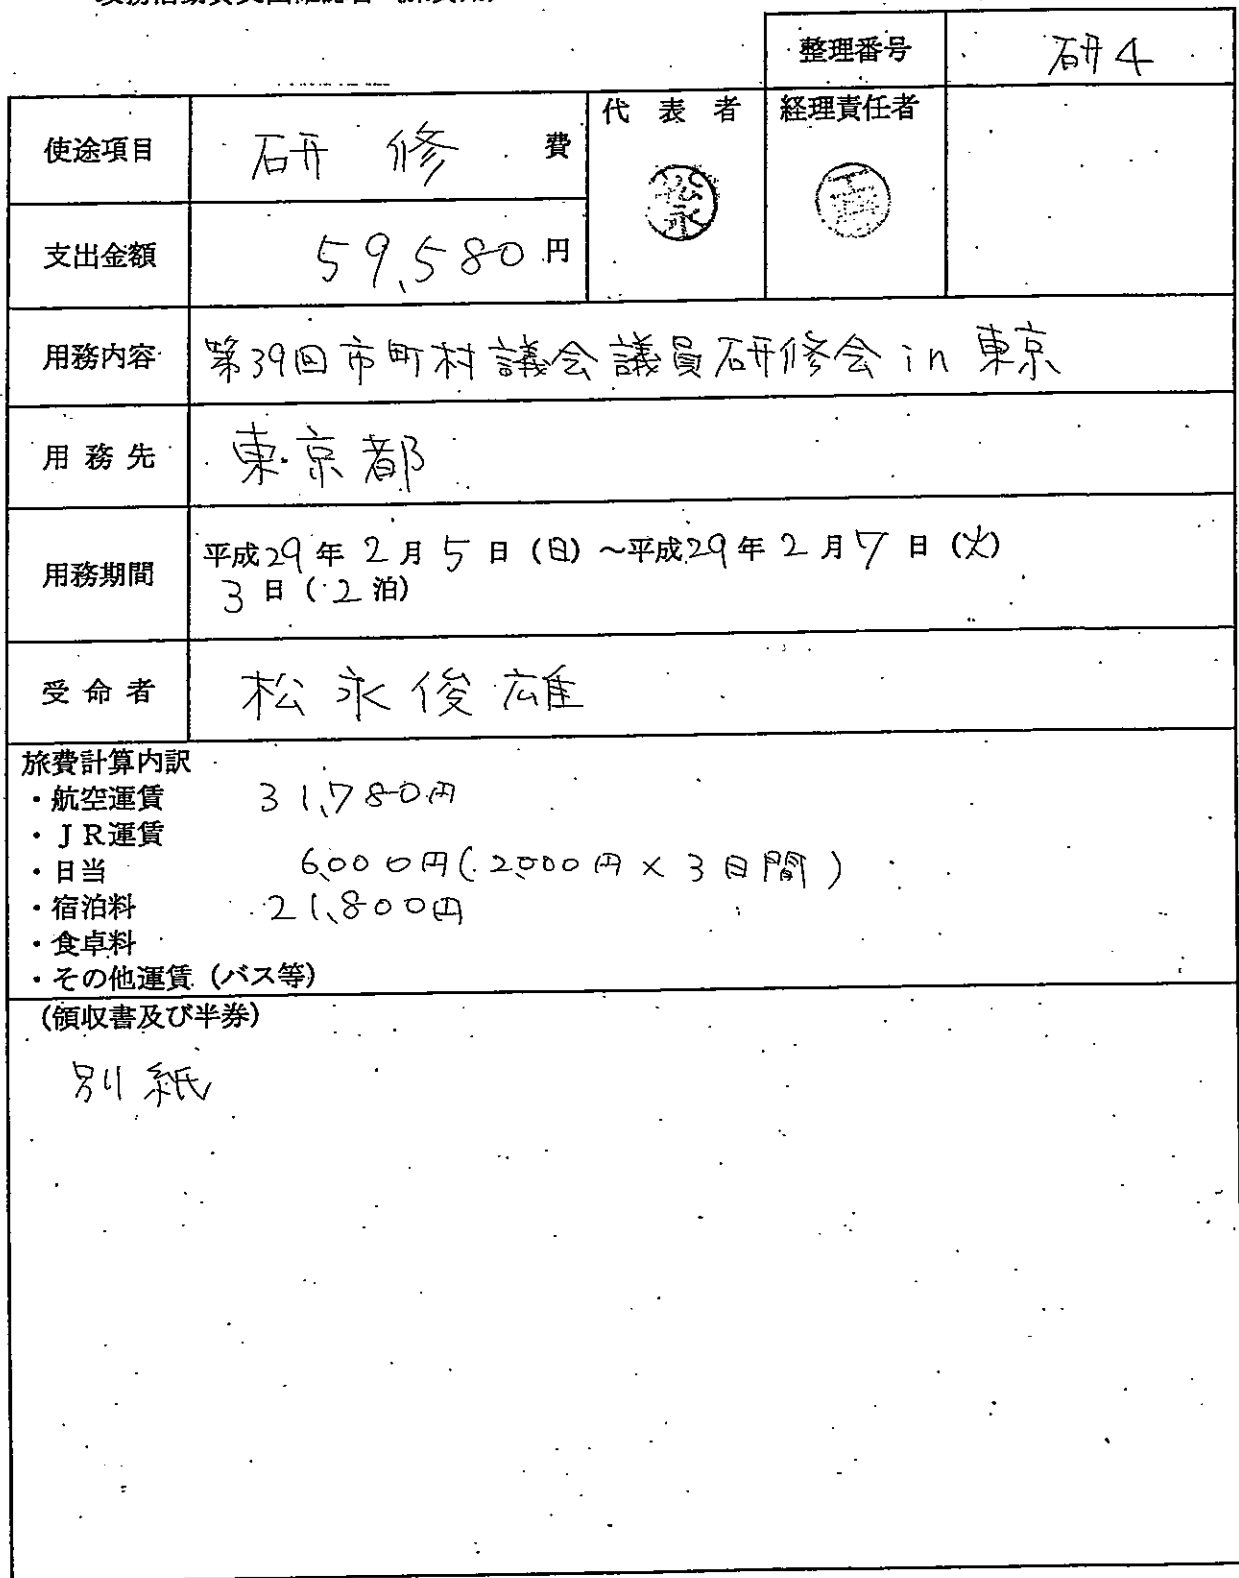 整理番号 研4
使途項目 研修費
代表者 経理責任者
松永
支出金額 59,580円
用務内容 第39回市町村議会議員研修会 in 東京
用務先 東京都
用務期間 平成29年2月5日(日)~平成29年2月7日(火)
3日(2泊)
受命者 松永俊雄
旅費計算内訳
・航空運賃 31,780円
・JR運賃
・日当 6,000円(2,000円×3日間)
・宿泊料 21,800円
・食卓料
・その他運賃(バス等)
(領収書及び半券)
別紙